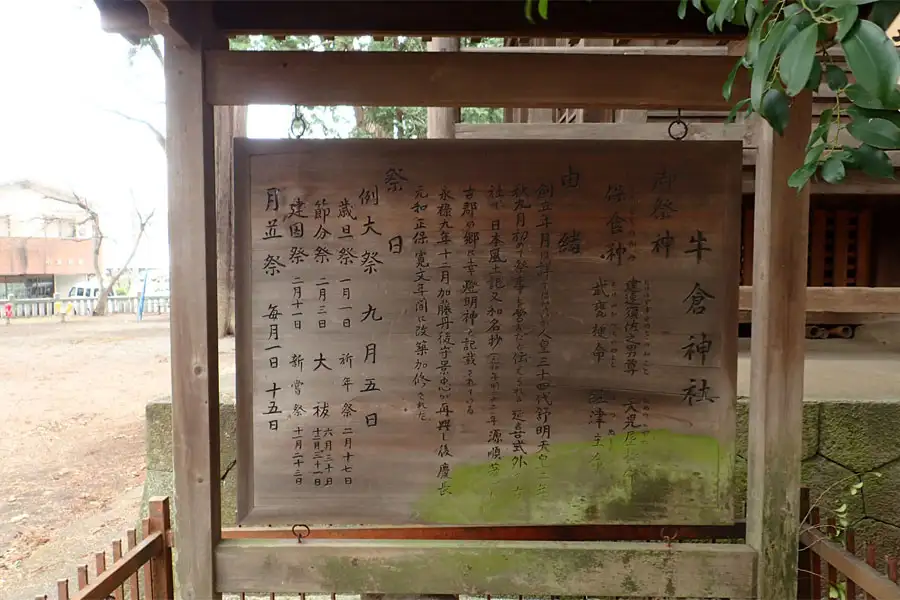 牛倉神社
御祭神
保食神
建速須佐之男尊
武甕槌命
由緒
創立年月は詳でないが人皇三十四代舒明天皇
秋九月初めて祭事を営みたと伝
延喜式外
社で日本風土記又和名抄
源順
古郡の郷に幸燈明神と記載されている
永禄九年十二月加藤丹後守景忠が再興し後慶長
元和正保寛文年間に改築加修された
祭日
例大祭 九月五日
歳旦祭 一月一日 祈年祭 二月十七日
節分祭 二月三日 大祓 六月三十日 十二月三十一日
建国祭 二月十一日 新嘗祭 十一月二十三日
月並祭 毎月一日 十五日